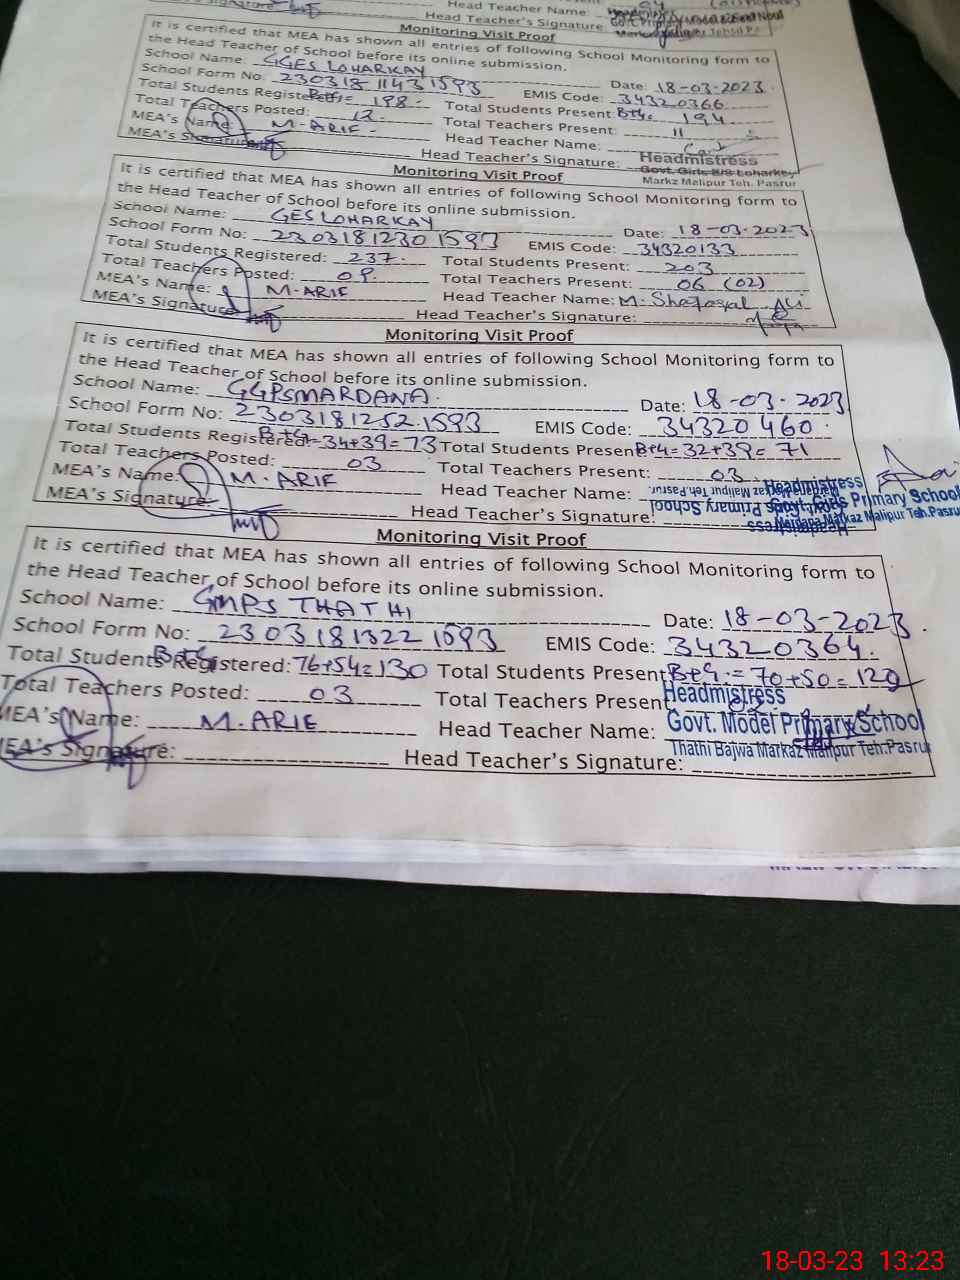 Head Teacher Name:
Head Teacher's Signature
Monitoring Visit Proof
It is certified that MEA has shown all entries of following School Monitoring form to
the Head Teacher of School before its online submission.
School Name: GGES LOHARKAY Date: 18-03-2023
School Form No: 230318 1143 1593 EMIS Code: 34320366
Total Students Registered: B+G= 198 Total Students Present: B+G= 194
Total Teachers Posted: 12 Total Teachers Present: 11
MEA's Name: M-ARIF Head Teacher Name:
MEA's Signature: Head Teacher's Signature:
Headmistress
Govt. Girls E/S Loharkey
Markz Malipur Teh. Pasrur
Monitoring Visit Proof
It is certified that MEA has shown all entries of following School Monitoring form to
the Head Teacher of School before its online submission.
School Name: GES LOHARKAY Date: 18-03-2023
School Form No: 2303181230 1593 EMIS Code: 34320133
Total Students Registered: 237 Total Students Present: 203
Total Teachers Posted: 09 Total Teachers Present: 06 (02)
MEA's Name: M-ARIF Head Teacher Name: M. Ali
MEA's Signature: Head Teacher's Signature:
Monitoring Visit Proof
It is certified that MEA has shown all entries of following School Monitoring form to
the Head Teacher of School before its online submission.
School Name: GGPS MARDANA Date: 18-03-2023
School Form No: 2303181252 1593 EMIS Code: 34320460
Total Students Registered: B+G=34+39=73 Total Students Present: B+G=32+39=71
Total Teachers Posted: 03 Total Teachers Present: 03
MEA's Name: M-ARIF Head Teacher Name:
MEA's Signature: Head Teacher's Signature:
Headmistress
Govt. Girls Primary School
Mardana Markaz Malipur Teh.Pasrur
Monitoring Visit Proof
It is certified that MEA has shown all entries of following School Monitoring form to
the Head Teacher of School before its online submission.
School Name: GMPS THATHI Date: 18-03-2023
School Form No: 2303181322 1593 EMIS Code: 34320364
Total Students Registered: B+G 76+54=130 Total Students Present B+G=70+50=120
Total Teachers Posted: 03 Total Teachers Present
MEA's Name: M-ARIF Head Teacher Name:
MEA's Signature: Head Teacher's Signature:
Headmistress
Govt. Model Primary School
Thathi Bajwa Markaz Malipur Teh.Pasrur
18-03-23 13:23